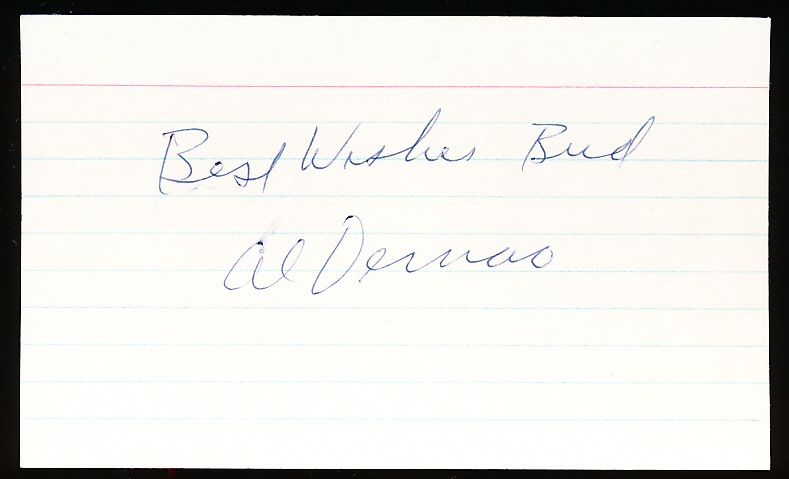 Best Wishes Bud
Al Demao